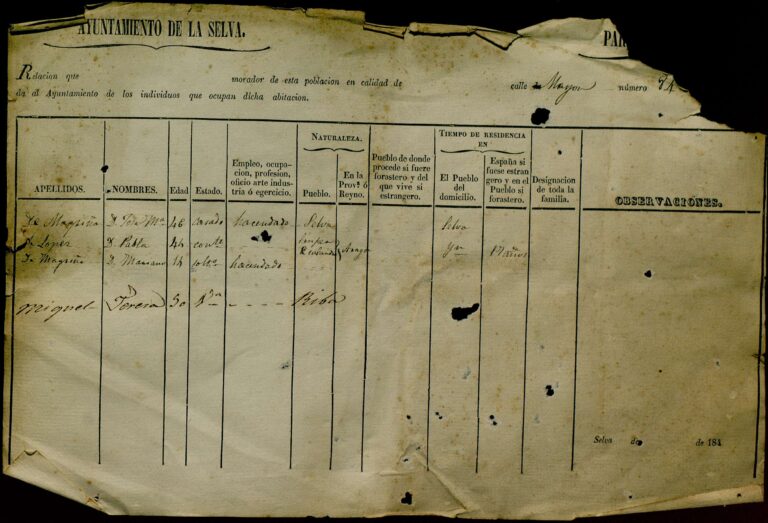 AYUNTAMIENTO DE LA SELVA.
PAR
Relacion que morador de esta poblacion en calidad de calle de Mayor número 84
da al Ayuntamiento de los individuos que ocupan dicha abitacion.
APELLIDOS.
NOMBRES.
Edad
Estado.
Empleo, ocupa-
cion, profesion,
oficio arte indus-
tria ó egercicio.
NATURALEZA.
Pueblo.
En la
Prov.ª ó
Reyno.
Pueblo de donde
procede si fuere
forastero y del
que vive si
estrangero.
TIEMPO DE RESIDENCIA
EN
El Pueblo
del
domicilio.
España si
fuese estran
gero y en el
Pueblo si
forastero.
Designacion
de toda la
familia.
OBSERVACIONES.
De Magriña D. 46 casado hacendado Selva Selva
De Lopez D. Pabla 44 Aragon
De Magriña D. Mariano 14 solt.o hacendado 17 años
Miguel Teresa 30 Riba
Selva de de 184